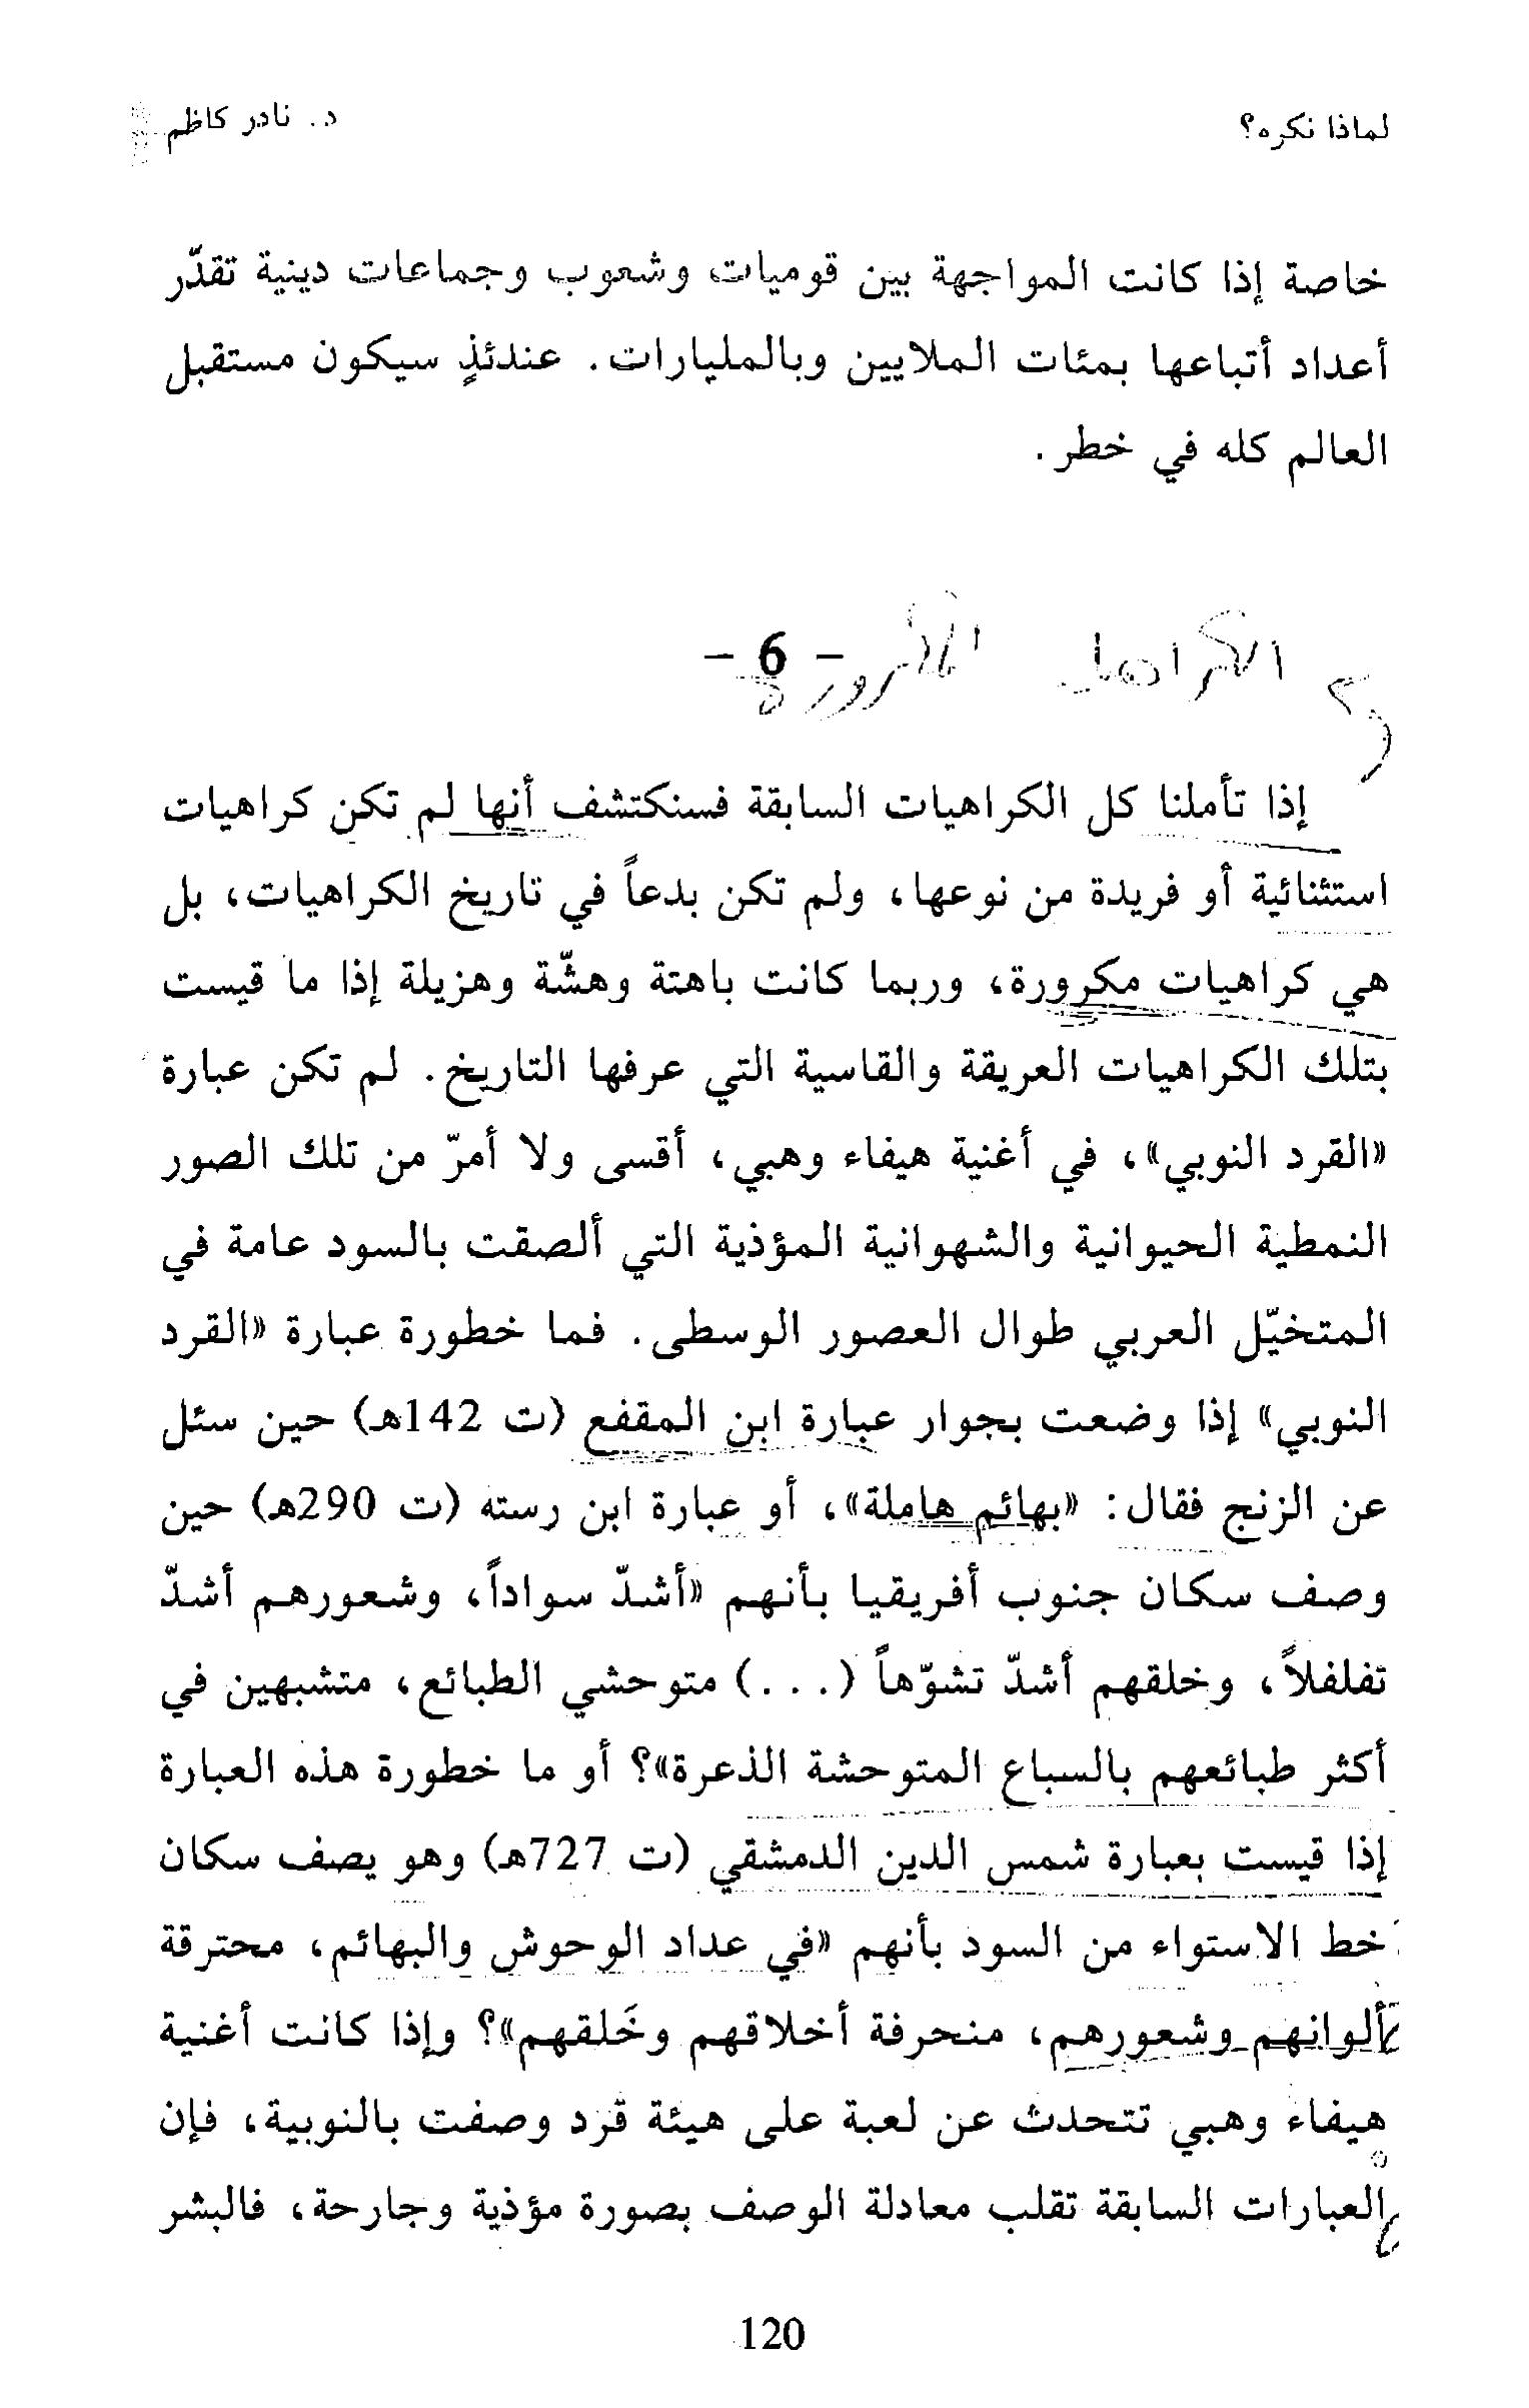 لماذا نكره؟ د. نادر كاظم
خاصة إذا كانت المواجهة بين قوميات وشعوب وجماعات دينية تقدّر
أعداد أتباعها بمئات الملايين وبالمليارات. عندئذٍ سيكون مستقبل
العالم كله في خطر.
- 6 -
إذا تأملنا كل الكراهيات السابقة فسنكتشف أنها لم تكن كراهيات
استثنائية أو فريدة من نوعها، ولم تكن بدعاً في تاريخ الكراهيات، بل
هي كراهيات مكرورة، وربما كانت باهتة وهشّة وهزيلة إذا ما قيست
بتلك الكراهيات العريقة والقاسية التي عرفها التاريخ. لم تكن عبارة
«القرد النوبي»، في أغنية هيفاء وهبي، أقسى ولا أمرّ من تلك الصور
النمطية الحيوانية والشهوانية المؤذية التي ألصقت بالسود عامة في
المتخيّل العربي طوال العصور الوسطى. فما خطورة عبارة «القرد
النوبي» إذا وضعت بجوار عبارة ابن المقفع (ت 142هـ) حين سئل
عن الزنج فقال: «بهائم هاملة»، أو عبارة ابن رسته (ت 290هـ) حين
وصف سكان جنوب أفريقيا بأنهم «أشدّ سواداً، وشعورهم أشدّ
تفلفلاً، وخلقهم أشدّ تشوّهاً (...) متوحشي الطبائع، متشبهين في
أكثر طبائعهم بالسباع المتوحشة الذعرة»؟ أو ما خطورة هذه العبارة
إذا قيست بعبارة شمس الدين الدمشقي (ت 727هـ) وهو يصف سكان
خط الاستواء من السود بأنهم «في عداد الوحوش والبهائم، محترقة
ألوانهم وشعورهم، منحرفة أخلاقهم وخَلقهم»؟ وإذا كانت أغنية
هيفاء وهبي تتحدث عن لعبة على هيئة قرد وصفت بالنوبية، فإن
العبارات السابقة تقلب معادلة الوصف بصورة مؤذية وجارحة، فالبشر
120